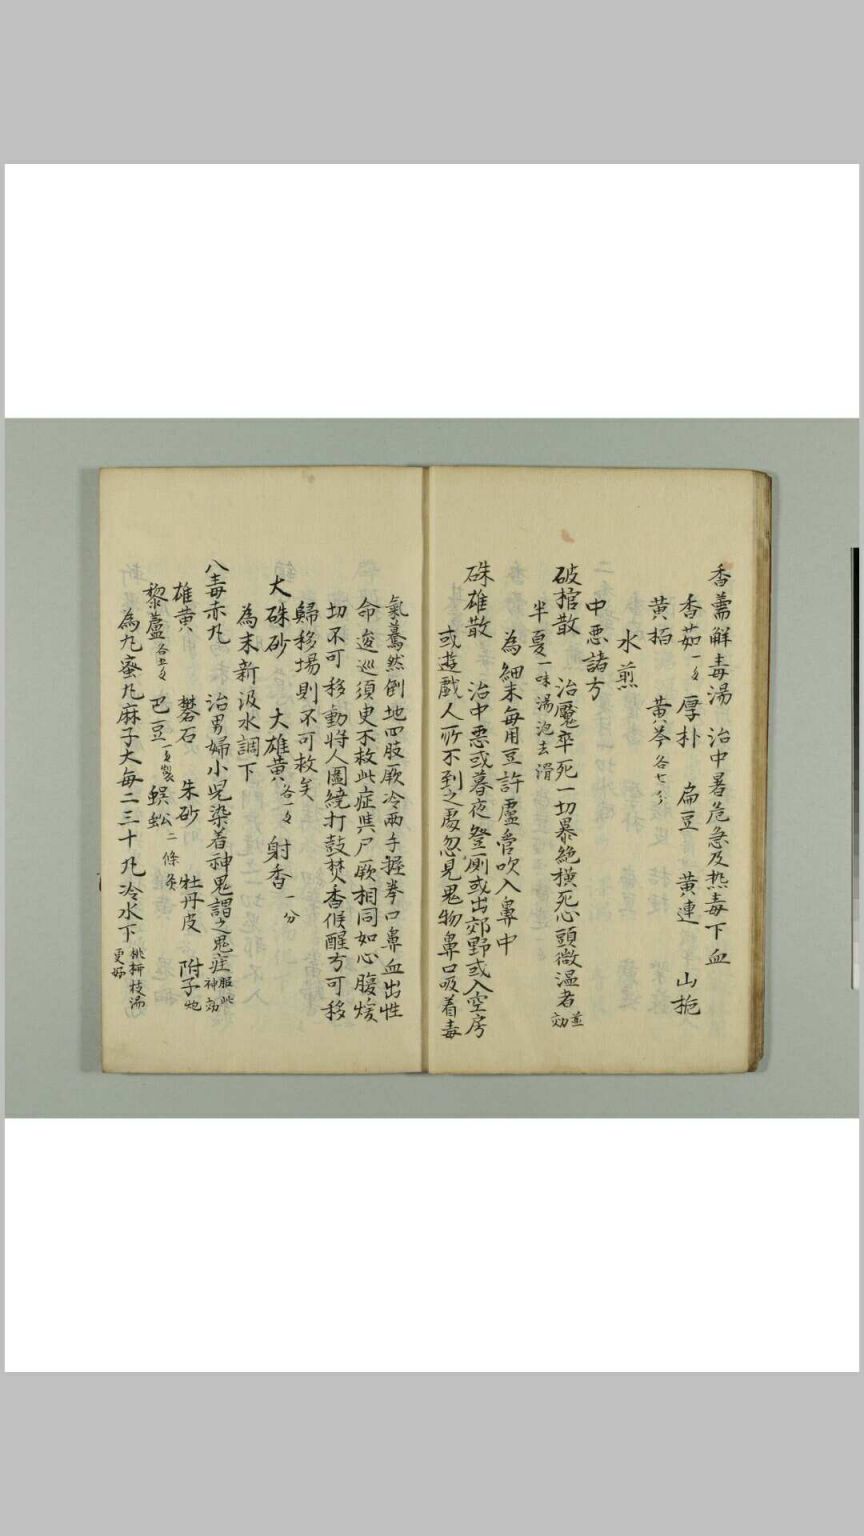 香薷解毒湯　治中暑危急及热毒下血
香茹一戔　厚朴　扁豆　黄連　山梔
黄栢　黄芩各七分
水煎
中悪諸方
破棺散　治魘卒死一切暴絶横死心頭微温者並効
半夏一味湯泡去滑
為細末毎用豆許蘆管吹入鼻中
硃雄散　治中悪或暮夜登厠或出郊野或入空房
或遊戲人所不到之處忽見鬼物鼻口吸着毒
氣驀然倒地四肢厥冷兩手握拳口鼻血出性
命逡巡須臾不救此症與尸厥相同如心腹煖
切不可移動將人圍繞打鼓焚香候醒方可移
歸移場則不可救矣
大硃砂　大雄黄各一戔　射香一分
為末新汲水調下
八毒赤丸　治男婦小児染着神鬼謂之鬼疰服此神効
雄黄　礬石　朱砂　牡丹皮　附子炮
黎蘆各　巴豆一戔製　蜈蚣二條炙
為丸蜜丸麻子大毎二三十丸冷水下桃枝湯更好